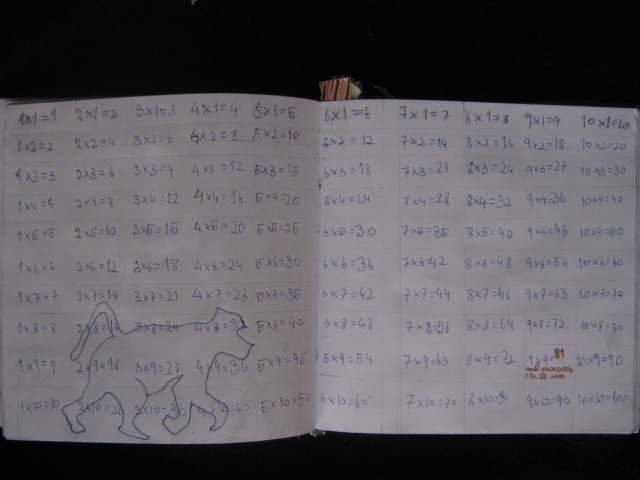 1x1=1 2x1=2 3x1=3 4x1=4 5x1=5 6x1=6 7x1=7 8x1=8 9x1=9 10x1=10
1x2=2 2x2=4 3x2=6 4x2=8 5x2=10 6x2=12 7x2=14 8x2=16 9x2=18 10x2=20
1x3=3 2x3=6 3x3=9 4x3=12 5x3=15 6x3=18 7x3=21 8x3=24 9x3=27 10x3=30
1x4=4 2x4=8 3x4=12 4x4=16 5x4=20 6x4=24 7x4=28 8x4=32 9x4=36 10x4=40
1x5=5 2x5=10 3x5=15 4x5=20 5x5=25 6x5=30 7x5=35 8x5=40 9x5=45 10x5=50
1x6=6 2x6=12 3x6=18 4x6=24 5x6=30 6x6=36 7x6=42 8x6=48 9x6=54 10x6=60
1x7=7 2x7=14 3x7=21 4x7=28 5x7=35 6x7=42 7x7=44 8x7=56 9x7=63 10x7=70
1x8=8 2x8=16 3x8=24 4x8=3 5x8=40 6x8=48 7x8=56 8x8=64 9x8=72 10x8=80
1x9=9 2x9=18 3x9=27 4x9=36 5x9=45 6x9=54 7x9=63 8x9=72 9x9=81 10x9=90
1x10=10 3x10=30 4x10=40 5x10=50 6x10=60 7x10=70 8x10=80 9x10=90 10x10=100